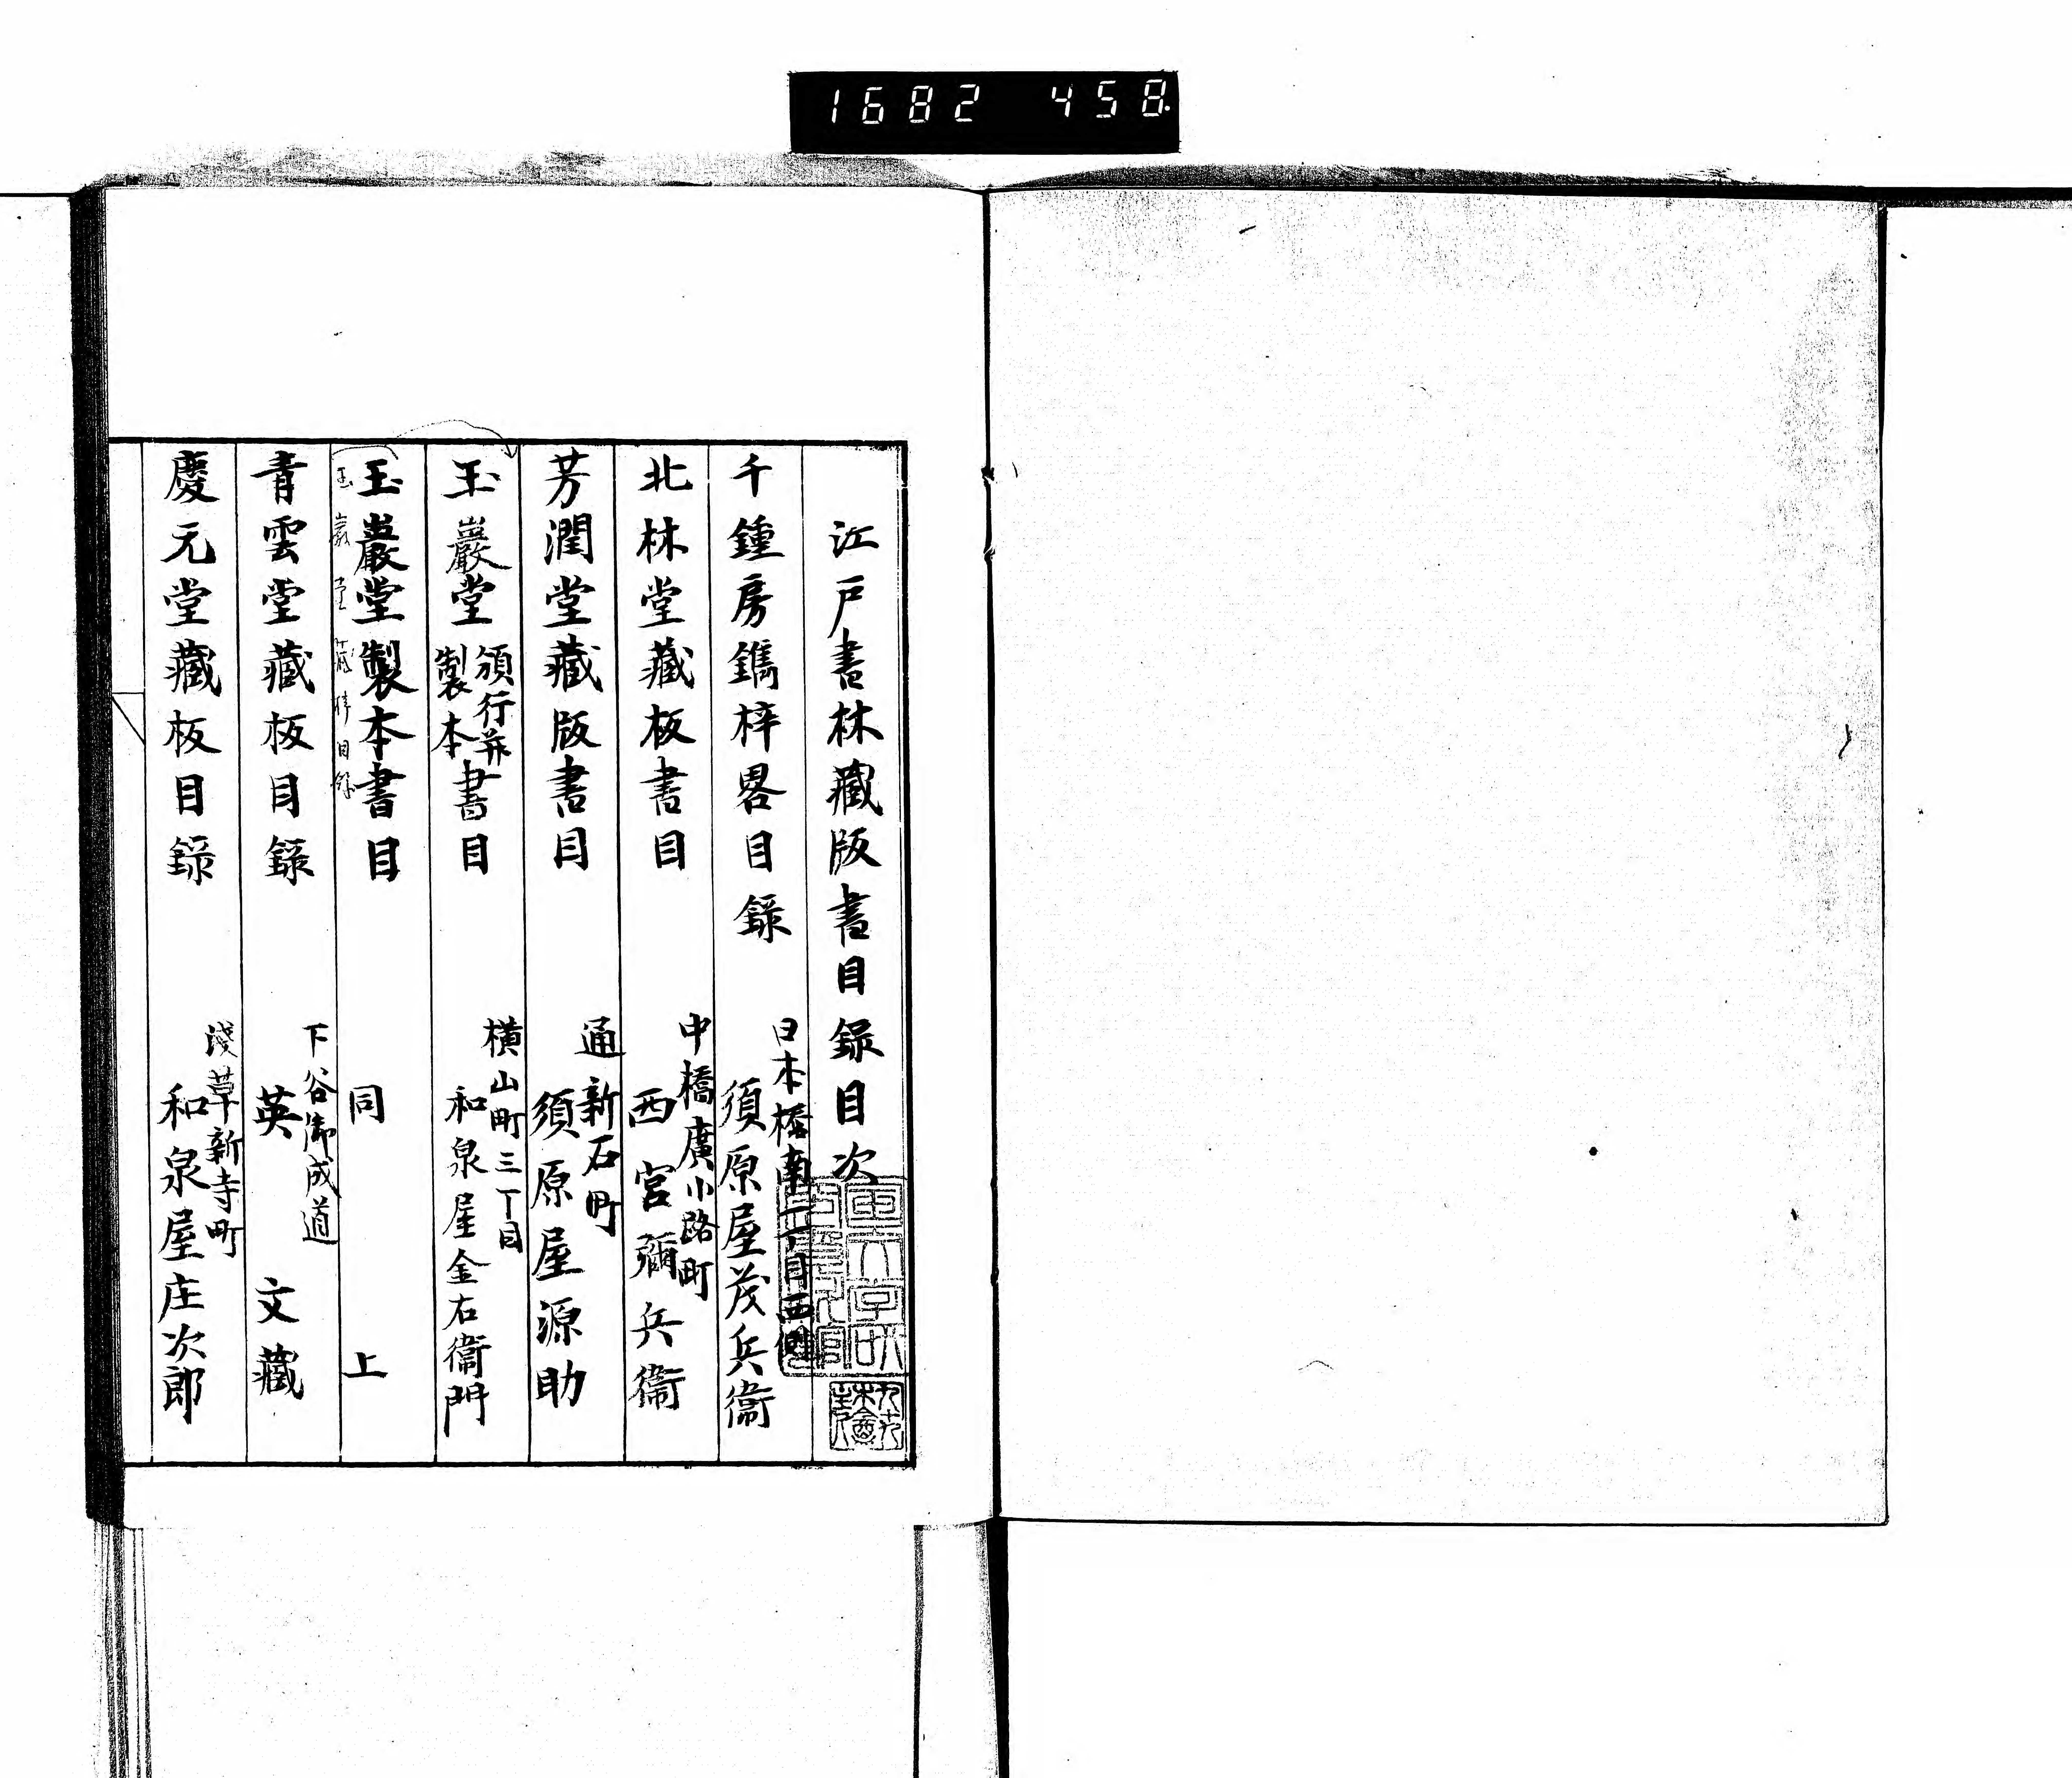 1682 458
江戸書林藏版書目錄目次
千鍾房鐫梓畧目錄
日本橋南一丁目西側
須原屋茂兵衞
北林堂藏板書目
中橋廣小路町
西宮彌兵衞
芳潤堂藏版書目
通新石町
須原屋源助
玉巖堂頒行并製本書目
横山町三丁目
和泉屋金右衞門
玉巖堂製本書目
同上
玉巖堂藏
目錄
青雲堂藏板目錄
下谷御成道
英文藏
慶元堂藏板目錄
淺草新寺町
和泉屋庄次郎